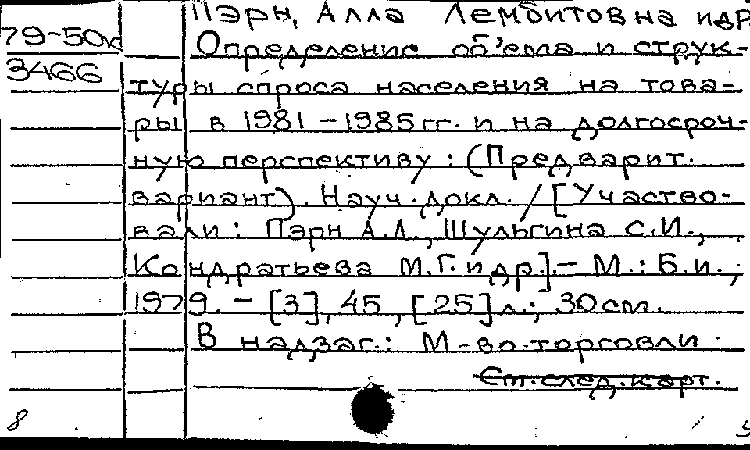 Пэрн, Алла Лембитовна и др
79-50
Определение объема и струк-
3466
туры спроса населения на това-
ры в 1981-1985гг. и на долгосроч-
ную перспективу: (Предварит.
вариант). Науч. докл. / [Участво-
вали: Пэрн А.Л., Шульгина С.И.,
Кондратьева М.Г. и др.]. - М.: Б.и.,
1979. - [3], 45, [25] л.; 30 см.
В надзаг.: М-во торговли
См. след. карт.
8